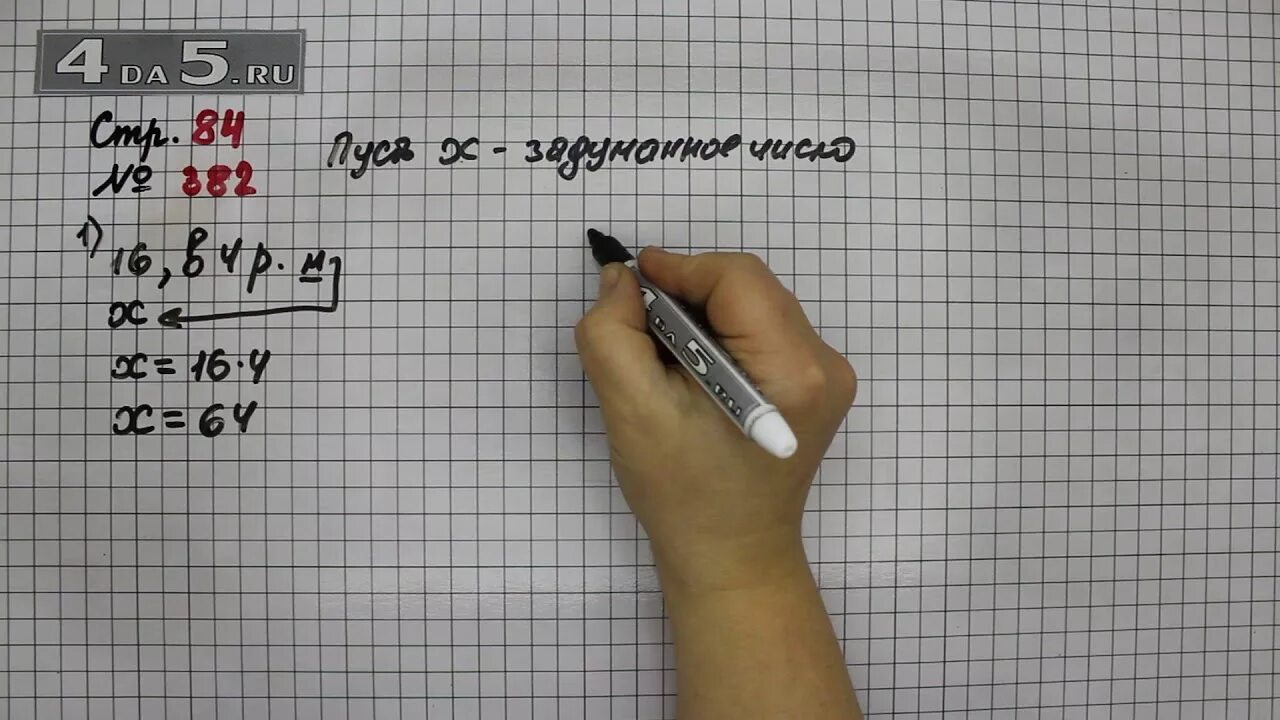 4DA5.RU
Стр. 84
№ 382
Пусть x - задуманное число
1)
16, в 4 р. м
x
x = 16·4
x = 64
4DA5.RU